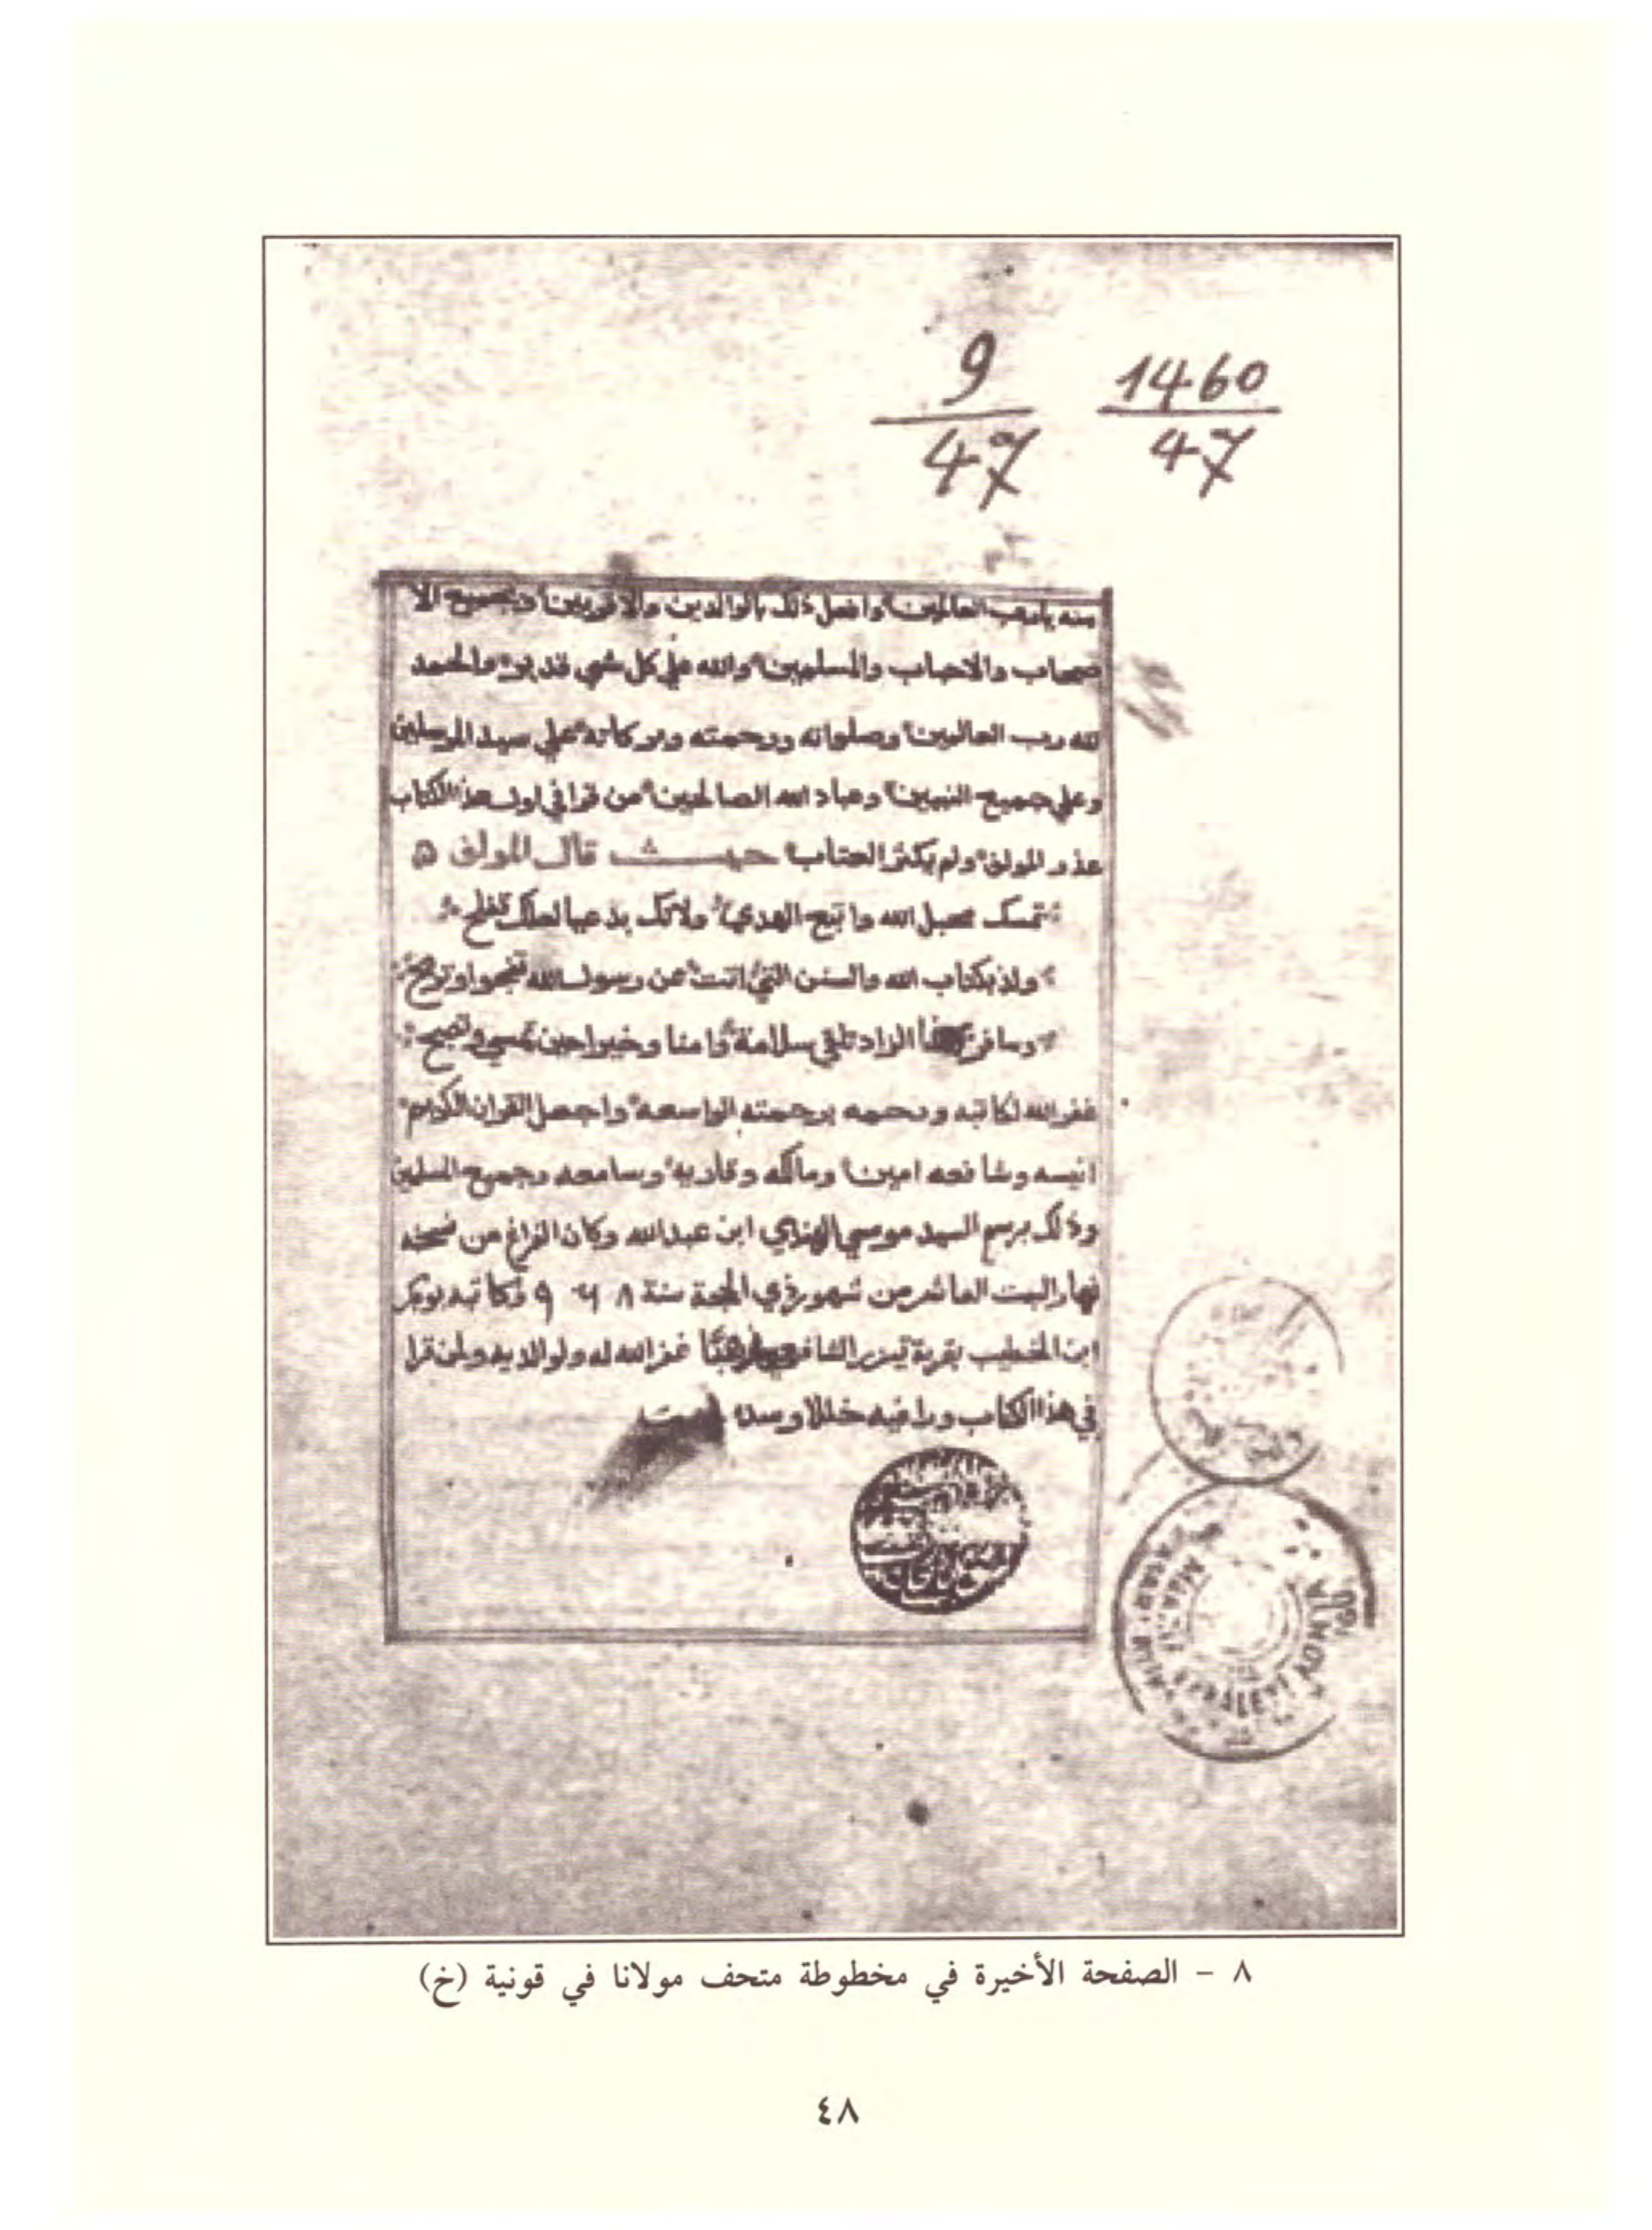 9 1460
47 47
منه يا رب العالمين وافعل ذلك بالوالدين والاقربين وبجميع الا
صحاب والاحباب والمسلمين والله علي كل شي قدير والحمد
لله رب العالمين وصلواته ورحمته وبركاته علي سيد المرسلين
وعلي جميع النبيين وعباد الله الصالحين من قرا في اول هذا الكتاب
عذر المولف ولم يكثر العتاب حيث قال المولف
تمسك بحبل الله واتبع الهدي ولاتك بدعيا لعلك تفلح
ولذ بكتاب الله والسنن التي اتت عن رسول الله تنجوا وتربح
وسافر الزاد تلقي سلامة وامنا وخيرا حين تمسي وتصبح
غفر الله لكاتبه ورحمه برحمته الواسعه واجعل القران الكرام
انيسه وشافعه امين ومالكه وقاريه وسامعه وجميع المسلمين
وذلك برسم السيد موسي ابن عبدالله وكان الفراغ من نسخه
نهار السبت العاشر من شهور ذي الحجة سنة وكاتبه بوبكر
ابن الخطيب بقرية الشافعي غفر الله له ولوالديه ولمن قرا
في هذا الكتاب وراء فيه خللا وسده
٨ - الصفحة الأخيرة في مخطوطة متحف مولانا في قونية (خ)
٤٨